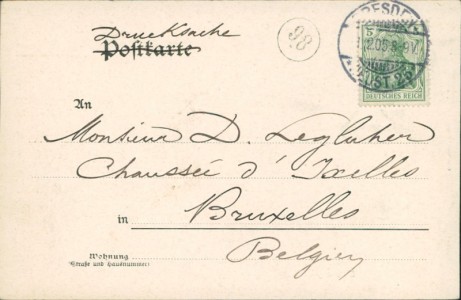 Drucksache
Postkarte
98
DRESDEN
5
DEUTSCHES REICH
An
Monsieur D.
Chaussée d'Ixelles
in Bruxelles
Wohnung
(Straße und Hausnummer)